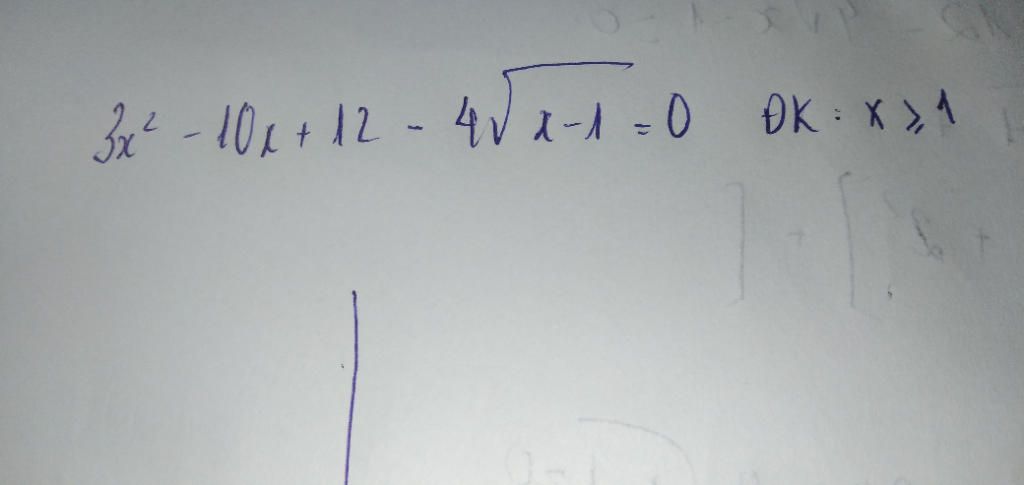 3x² - 10x + 12 - 4√x-1 = 0 ĐK: x ≥ 1